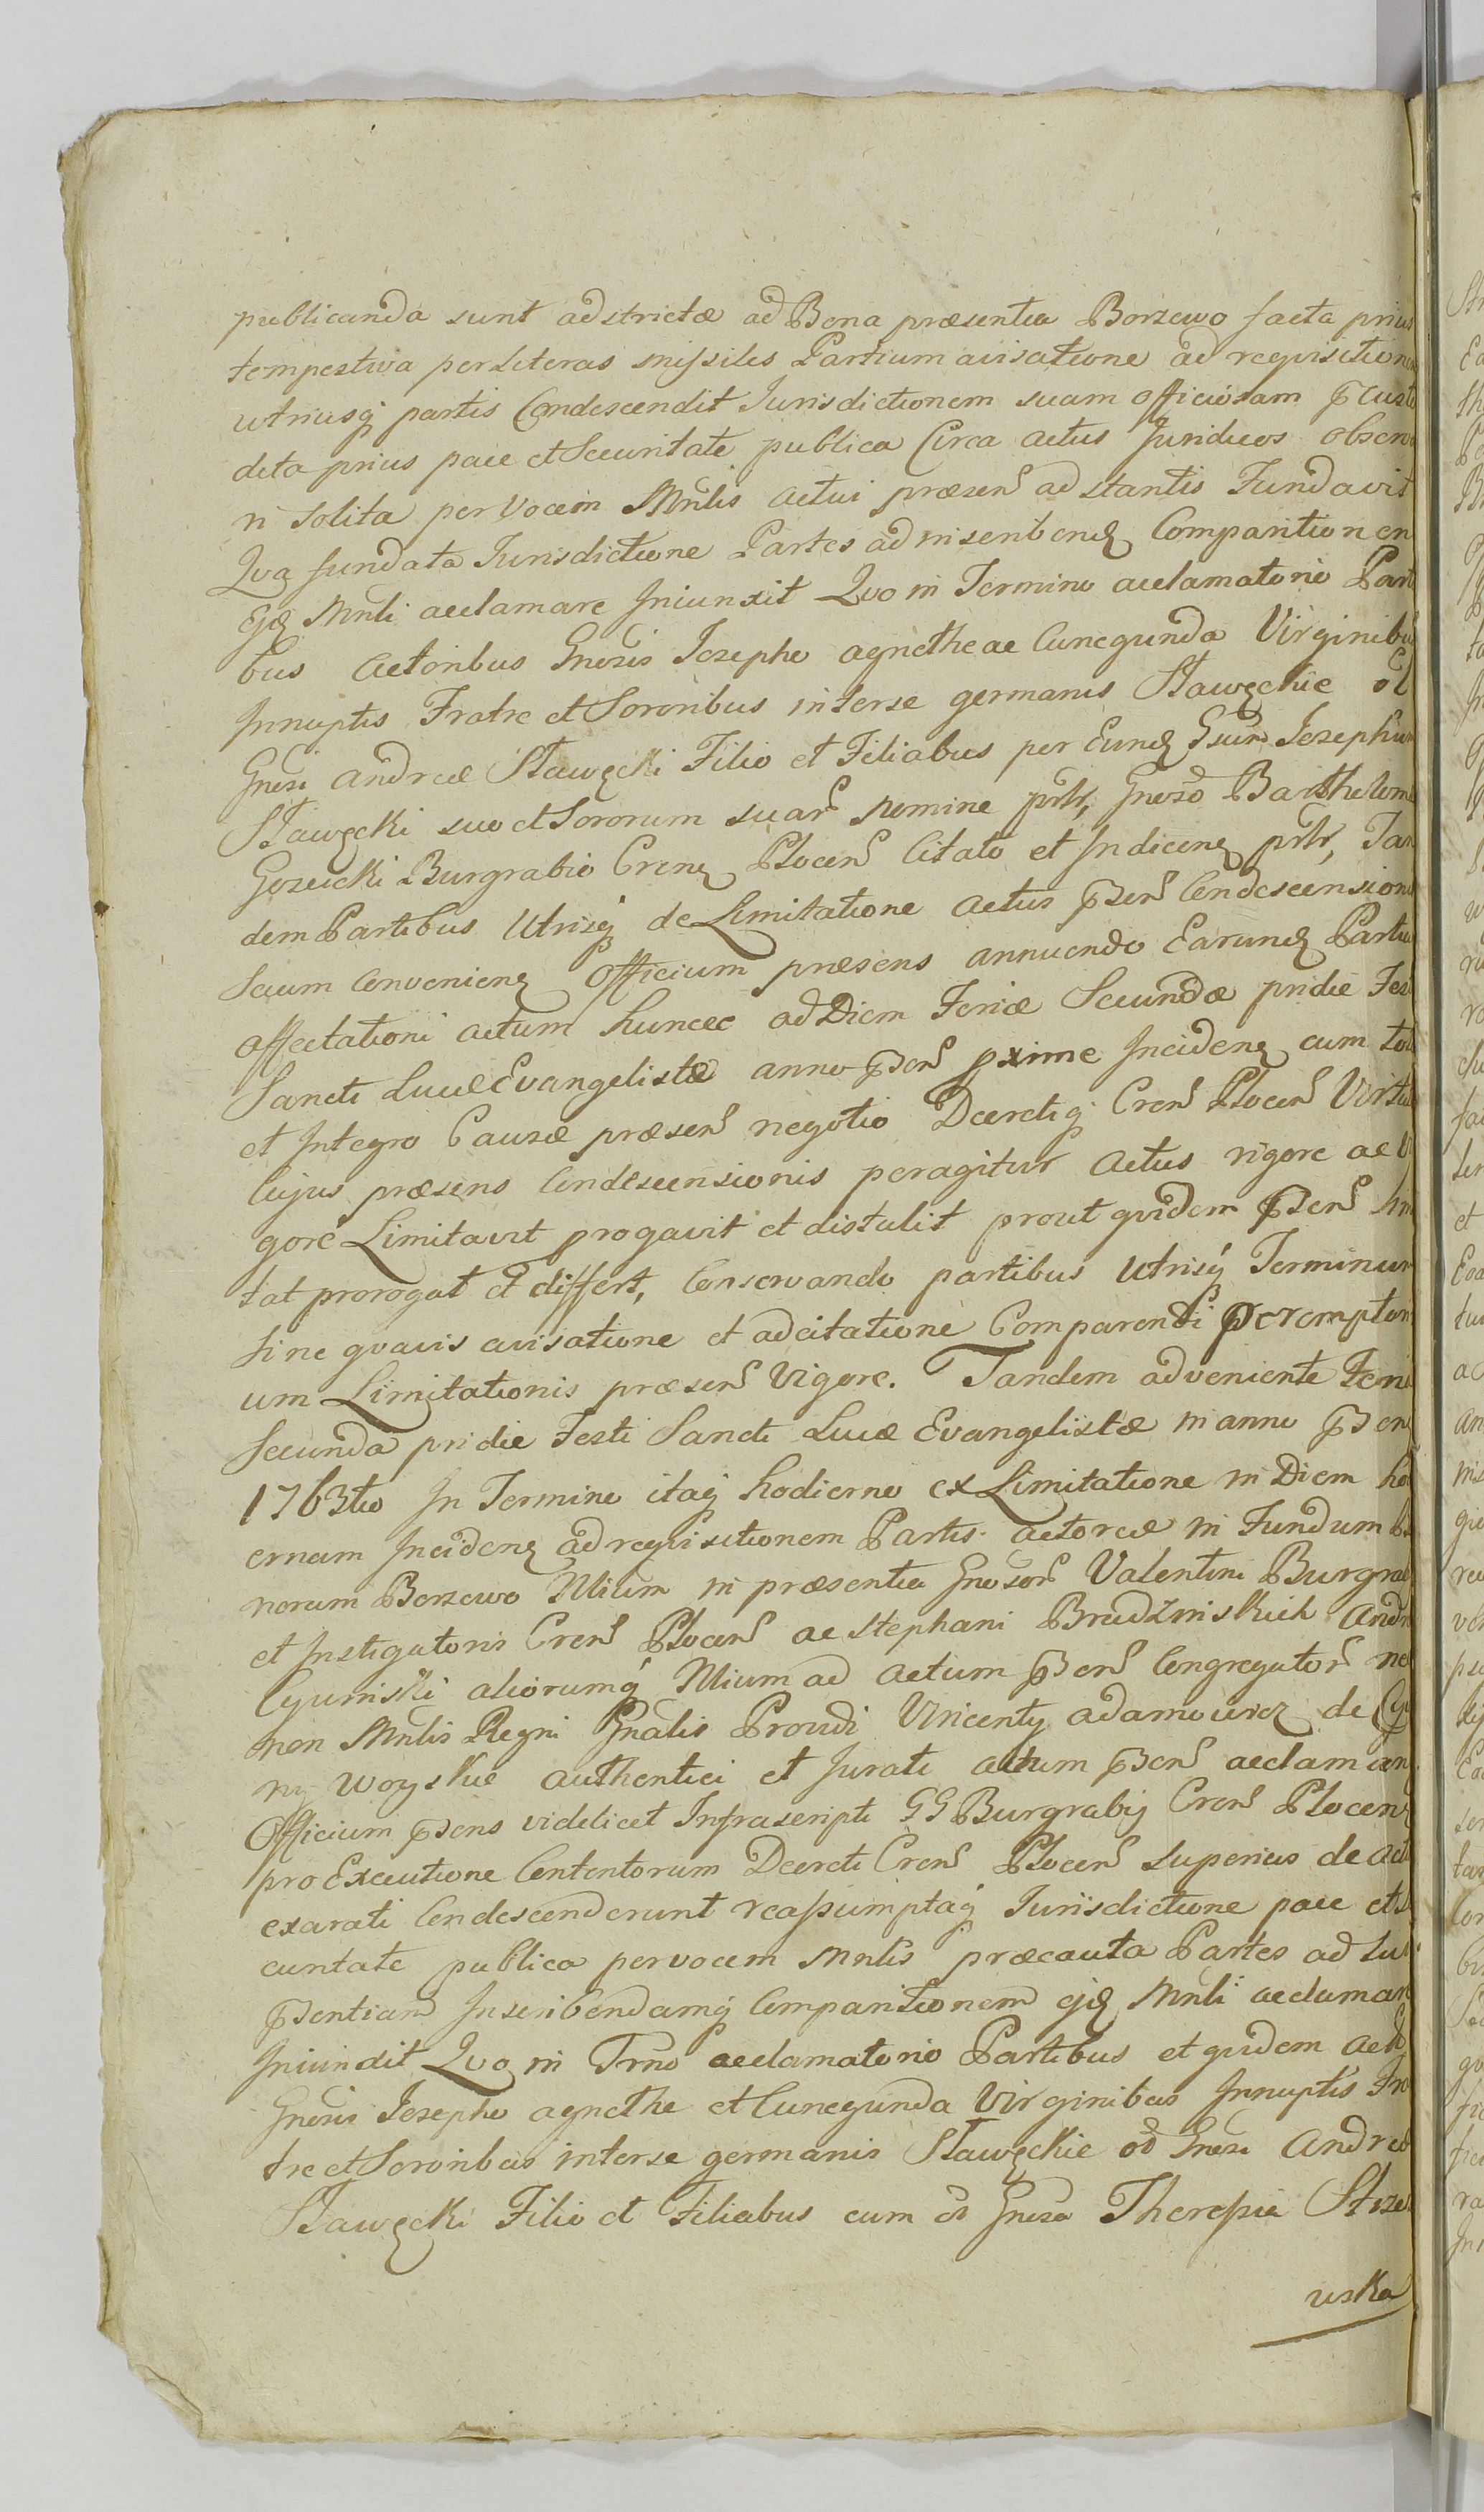 publicanda sunt adstrictæ ad Bona præsentia Borzewo facta prius
tempestiva per Literas missiles Partium avisatione ad requisitione
utriusq partis Condescendit Jurisdictionem suam officiosam
dita prius pace et Securitate publica Circa actus Juridicos observ
ri solita per Vocem Mnlis actui præsen adstantis Fundavit
Qua fundata Jurisdictione Partes ad inscribend Comparitionem
Ejd Mnli acclamare Iniunxit Quo in Termino acclamatorio Parti
bus Actoribus Gnosis Josepho agnethe ac Cunegunda Virginibus
Innuptis Fratre et Sororibus interse germanis Sławęckie ol
Gnosi andreæ Sławęcki Filio et Filiabus per Eund Gsum Josephum
Sławęcki suo et Sororum suar Nomine prtr, Gnoso Barthelome
Gozucki Burgrabio Cren Plocen Citato et Indicen prtr, Tan
dem Partibus Utrisq de Limitatione actus pden Condescensione
Secum Convenien Officium præsens annuendo Earund Partiu
affectationi actum huncce ad Diem Feriæ Secundæ pridie Fes
Sancti Lucæ Evangelistæ anno pden pxime Inciden cum tot
et Integro Causæ præsen negotio Decretiq Cren Plocen Virtu
Cujus præsens Condescensionis peragitur Actus rigore ac Vi
gore Limitavit progavit et distulit prout quidem pden limi
tat prorogat et differt, Conservando partibus Utrisq Terminum
sine quavis avisatione et adcitatione Comparendi peremptori
um Limitationis præsen Vigore. Tandem adveniente Feria
Secunda pridie Festi Sancti Lucæ Evangelistæ in anno pden
1763tio In Termino itaq hodierno ex Limitatione in Diem hodi
ernam Inciden ad requisitionem Partis actoreæ in Fundum Bo
norum Borzewo Mium in præsentia Gnosor Valentini Burgrab
et Instigatoris Cren Plocen ac Stephani Brudzinskich andr
Cyuniski aliorumq Mium ad actum pden Congregator nec
non Mnlis Regni Gnalis Providi Vincenty adamowicz de
ny woyskie authentici et Jurati actum pden acclaman
Officium pdens videlicet Infrascripti GG Burgrabij Cren Plocen
pro Executione Contentorum Decreti Cren Plocen superius de act
exarati Condescenderunt reassumptaq Jurisdictione pace et Se
curitate publica per vocem Mnlis præcauta Partes ad sui
pdentiam Inscribendamq Comparitionem ejd Mnli acclamare
Iniunxit Quo in Trno acclamatorio Partibus et quidem act
Gnosis Josepho agnethe et Cunegunda Virginibus Innuptis Fra
tre et Sororibus interse germanis Sławęckie od Gnosi Andreæ
Sławęcki Filio et Filiabus cum od Gnosa Theressia Strze
uska